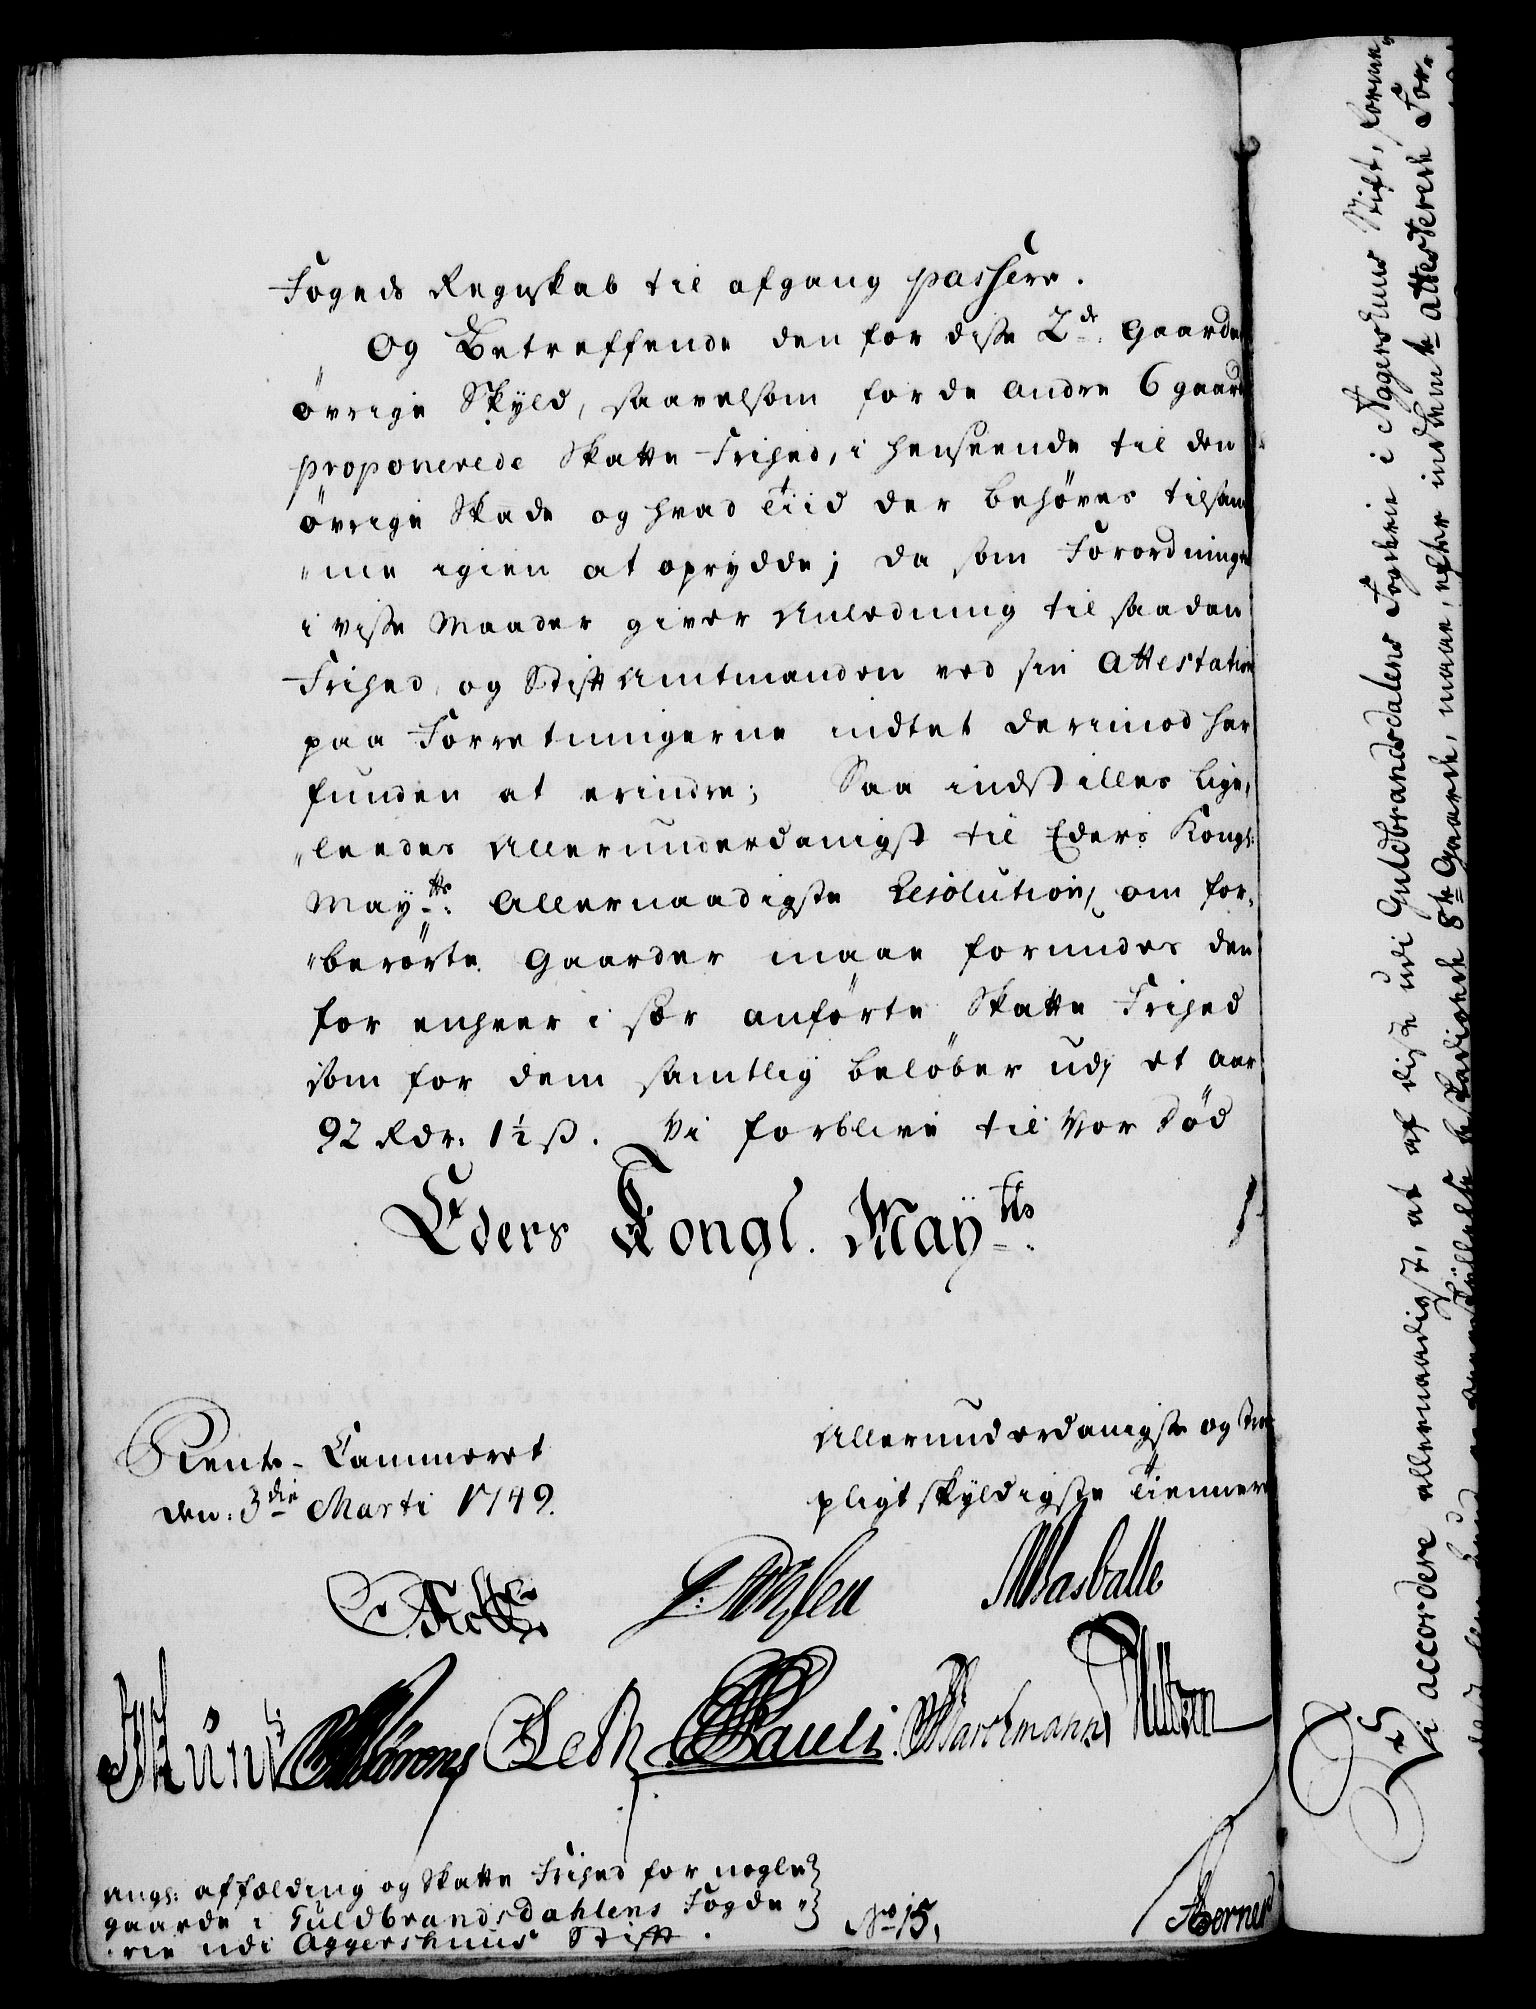 Fogeds Regnskab til afgang passere.
Og Betreffende den for disse 2de Gaarde
övrige Skyld, saavelsom for de andre 6 gaard
proponerede Skatte Frihed, i henseende til den
övrige Skade og hvad Tiid der behöves tilsam
"me igien at oprydde; da som Forordninge
i visse Maader giver Anledning til saadan
Frihed, og Stift Amtmanden ved sin Attestation
paa Forretningerne indtet derimod har
funden at erindre; Saa indstilles lige,
"leedes Allerunderdanigst til Eders Kongl:
Mayts: Allernaadigste Resolution, om for,
"berörte Gaarder maae forundes den
for enhver i sær anförte Skatte Frihed
som for dem samtlig belöber udj et aar
92 Rdr. 1½ ß. Vi forblive til Vor död
Eders Kongl. Mayts:
Rente-Cammeret
den: 3die Marti 1749.
Allerunderdanigste og
pligtskyldigste Tiennere
Masballe
Pauli
Berner
angl: affælding og Skatte Frihed for nogle
gaarde i Guldbrandsdahlens Fogde
"rie udi Aggershuus Stift.
No 15.
Vi accordere allernaadigst, at af disse udi Guldbrandsdalens Fogderie i Aggershuus Stift,
8te Gaarde, maae, efter indkomne attesterede For-